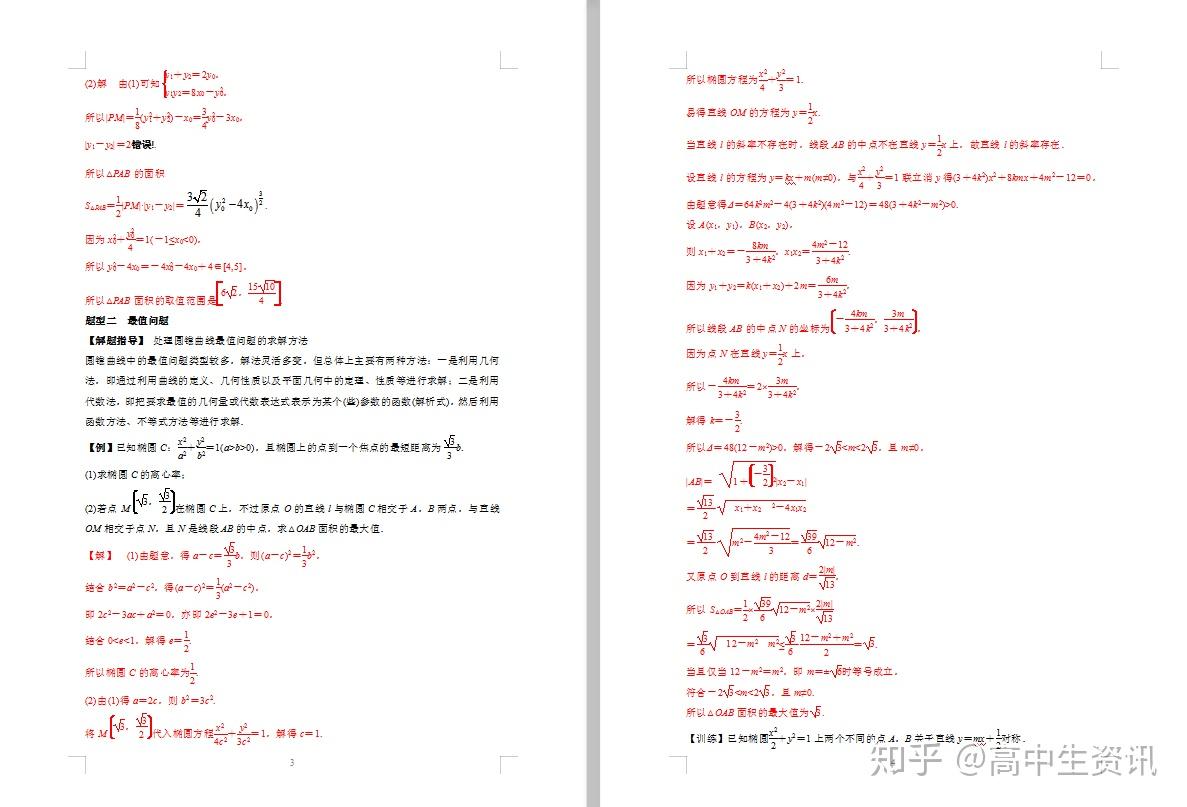 (2)解 由(1)可知{y₁+y₂=2y₀,
y₁y₂=8x₀-y₀²,
所以|PM|=1/8(y₁²+y₂²)-x₀=3/4y₀²-3x₀,
|y₁-y₂|=2错误!.
所以△PAB 的面积
S△PAB=1/2|PM|·|y₁-y₂|=3√2/4(y₀²-4x₀)^(3/2).
因为 x₀²+y₀²/4=1(-1≤x₀<0),
所以 y₀²-4x₀=-4x₀²-4x₀+4∈[4,5],
所以△PAB 面积的取值范围是[6√2, 15√10/4].
题型二 最值问题
【解题指导】 处理圆锥曲线最值问题的求解方法
圆锥曲线中的最值问题类型较多,解法灵活多变,但总体上主要有两种方法:一是利用几何
法,即通过利用曲线的定义、几何性质以及平面几何中的定理、性质等进行求解;二是利用
代数法,即把要求最值的几何量或代数表达式表示为某个(些)参数的函数(解析式),然后利用
函数方法、不等式方法等进行求解.
【例】已知椭圆 C:x²/a²+y²/b²=1(a>b>0),且椭圆上的点到一个焦点的最短距离为√3/3b.
(1)求椭圆 C 的离心率;
(2)若点 M(√3, √3/2)在椭圆 C 上,不过原点 O 的直线 l 与椭圆 C 相交于 A,B 两点,与直线
OM 相交于点 N,且 N 是线段 AB 的中点,求△OAB 面积的最大值.
【解】 (1)由题意,得 a-c=√3/3b,则(a-c)²=1/3b²,
结合 b²=a²-c²,得(a-c)²=1/3(a²-c²),
即 2c²-3ac+a²=0,亦即 2e²-3e+1=0,
结合 0<e<1,解得 e=1/2.
所以椭圆 C 的离心率为1/2.
(2)由(1)得 a=2c,则 b²=3c².
将 M(√3, √3/2)代入椭圆方程x²/4c²+y²/3c²=1,解得 c=1.
3
所以椭圆方程为x²/4+y²/3=1.
易得直线 OM 的方程为 y=1/2x.
当直线 l 的斜率不存在时,线段 AB 的中点不在直线 y=1/2x 上,故直线 l 的斜率存在.
设直线 l 的方程为 y=kx+m(m≠0),与x²/4+y²/3=1 联立消 y 得(3+4k²)x²+8kmx+4m²-12=0,
由题意得Δ=64k²m²-4(3+4k²)(4m²-12)=48(3+4k²-m²)>0.
设 A(x₁,y₁),B(x₂,y₂),
则 x₁+x₂=-8km/3+4k²,x₁x₂=4m²-12/3+4k².
因为 y₁+y₂=k(x₁+x₂)+2m=6m/3+4k²,
所以线段 AB 的中点 N 的坐标为(-4km/3+4k², 3m/3+4k²),
因为点 N 在直线 y=1/2x 上,
所以-4km/3+4k²=2×3m/3+4k²,
解得 k=-3/2.
所以Δ=48(12-m²)>0,解得-2√3<m<2√3,且 m≠0,
|AB|=√1+(-3/2)²|x₂-x₁|
=√13/2·√x₁+x₂ ²-4x₁x₂
=√13/2·√m²-4m²-12/3=√39/6√12-m².
又原点 O 到直线 l 的距离 d=2|m|/√13,
所以 S△OAB=1/2×√39/6√12-m²×2|m|/√13
=√3/6√12-m² m²≤√3/6·12-m²+m²/2=√3.
当且仅当 12-m²=m²,即 m=±√6时等号成立,
符合-2√3<m<2√3,且 m≠0.
所以△OAB 面积的最大值为√3.
【训练】已知椭圆x²/2+y²=1 上两个不同的点 A,B 关于直线 y=mx+1/2对称.
知乎 @高中生资讯